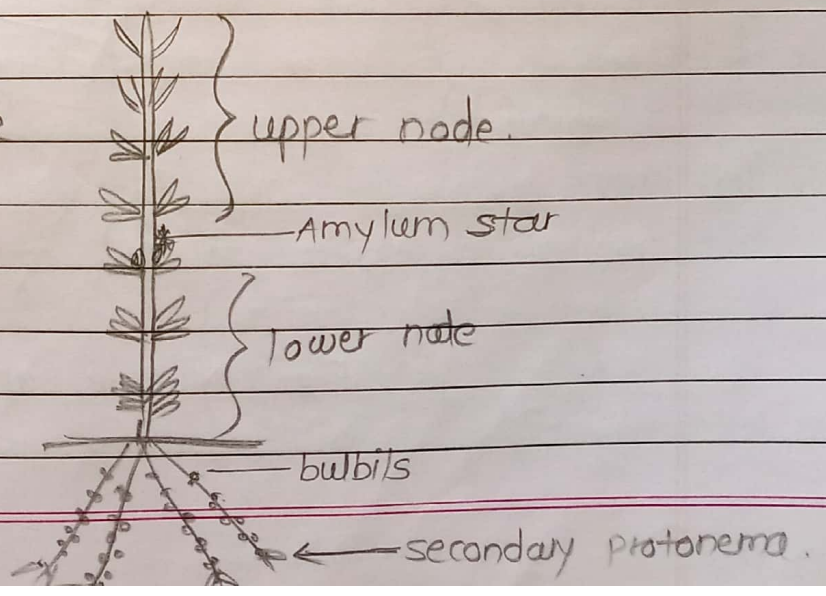 upper node.
Amylum star
lower node
bulbils
seconday protonema.